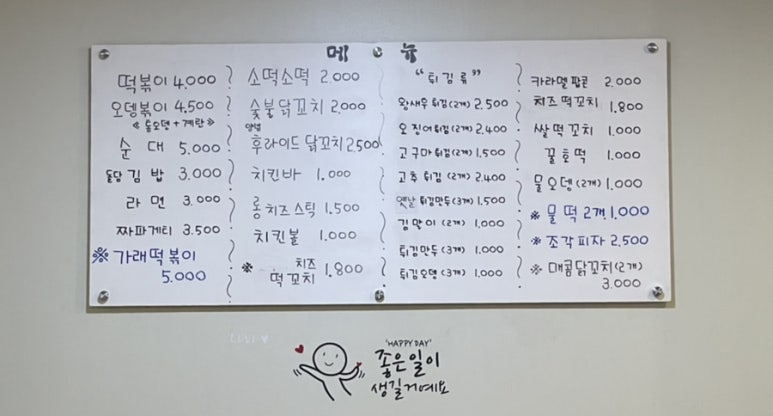 메 뉴
떡볶이 4.000
오뎅볶이 4.500
《 돌오뎅 + 계란 》
순 대 5.000
돌당 김 밥 3.000
라 면 3.000
짜파게티 3.500
※ 가래떡볶이
5.000
소떡소떡 2.000
숯불닭꼬치 2.000
양념
후라이드 닭꼬치 2500
치킨바 1.000
롱치즈스틱 1.500
치킨볼 1.000
※ 치즈
떡꼬치 1.800
“ 튀김류 ”
왕새우 튀김(2개) 2.500
오징어튀김(2개) 2.400
고구마튀김(2개) 1.500
고추 튀김 (2개) 2.400
옛날 튀김만두(3개) 1.500
김말이 (2개) 1.000
튀김만두 (3개) 1.000
튀김오뎅 (3개) 1.000
카라멜팝콘 2.000
치즈떡꼬치 1.800
쌀떡꼬치 1.000
꿀호떡 1.000
물오뎅 (2개) 1.000
※ 물 떡 2개 1.000
※ 조각피자 2.500
※ 매콤닭꼬치(2개)
3.000
'HAPPY DAY'
좋은일이
생길거예요